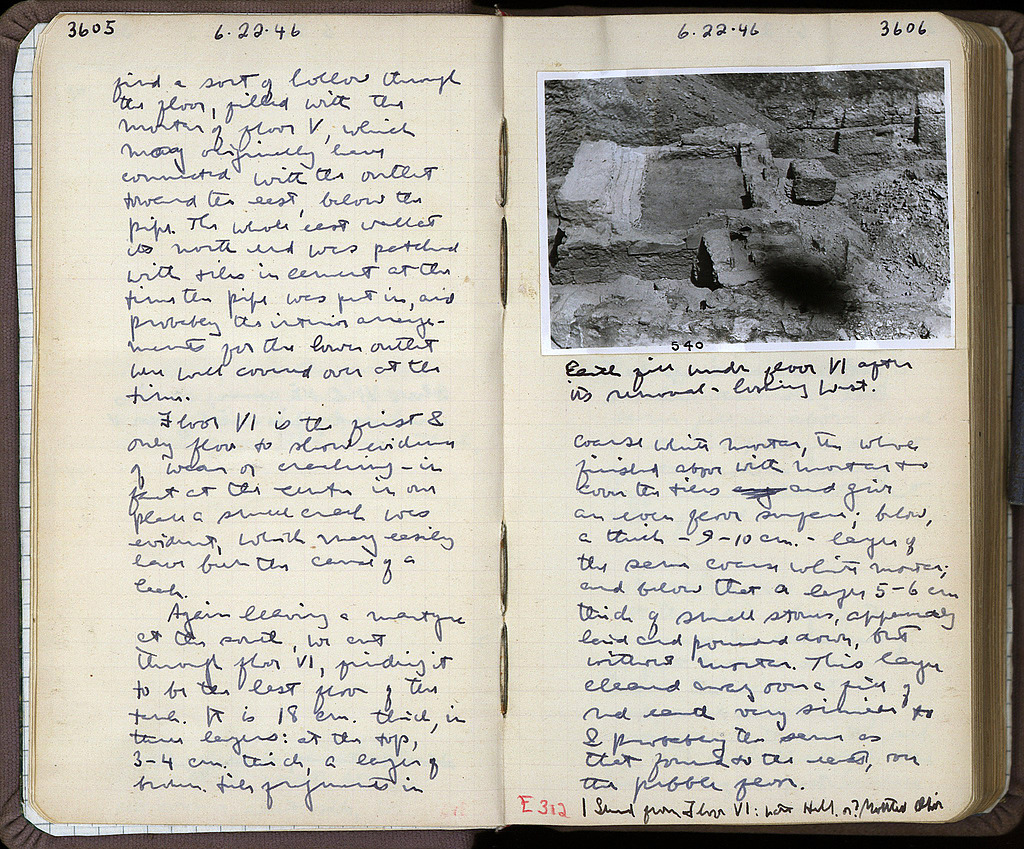 3605
6.22.46
find a sort of hollow through
the floor, filled with the
mortar of floor V, which
may originally have
connected with the outlet
toward the east, below the
pipe. The whole east wall at
its north end was patched
with tiles in cement at the
time the pipe was put in, and
probably the interior arrange-
ments for the lower outlet
were well covered over at the
time.
Floor VI is the first &
only floor to show evidence
of wear or cracking - in
fact at the center in one
place a small crack was
evident, which may easily
have been the cause of a
leak.
Again leaving a martyr
at the south, we cut
through floor VI, finding it
to be the last floor of the
tank. It is 18 cm. thick, in
three layers: at the top,
3-4 cm. thick, a layer of
broken tile fragments in
6.22.46
3606
540
Earth fill under floor VI after
its removal - looking west.
coarse white mortar, the whole
finished above with mortar to
cover the tiles and give
an even floor surface; below,
a thick - 9-10 cm. - layer of
the same coarse white mortar;
and below that a layer 5-6 cm
thick of small stones, apparently
laid and pounded down, but
without mortar. This layer
cleaned away over a fill of
red earth very similar to
& probably the same as
that found to the east, over
the pebble floor.
E 312
1 Sherd from Floor VI: late Hell. or?